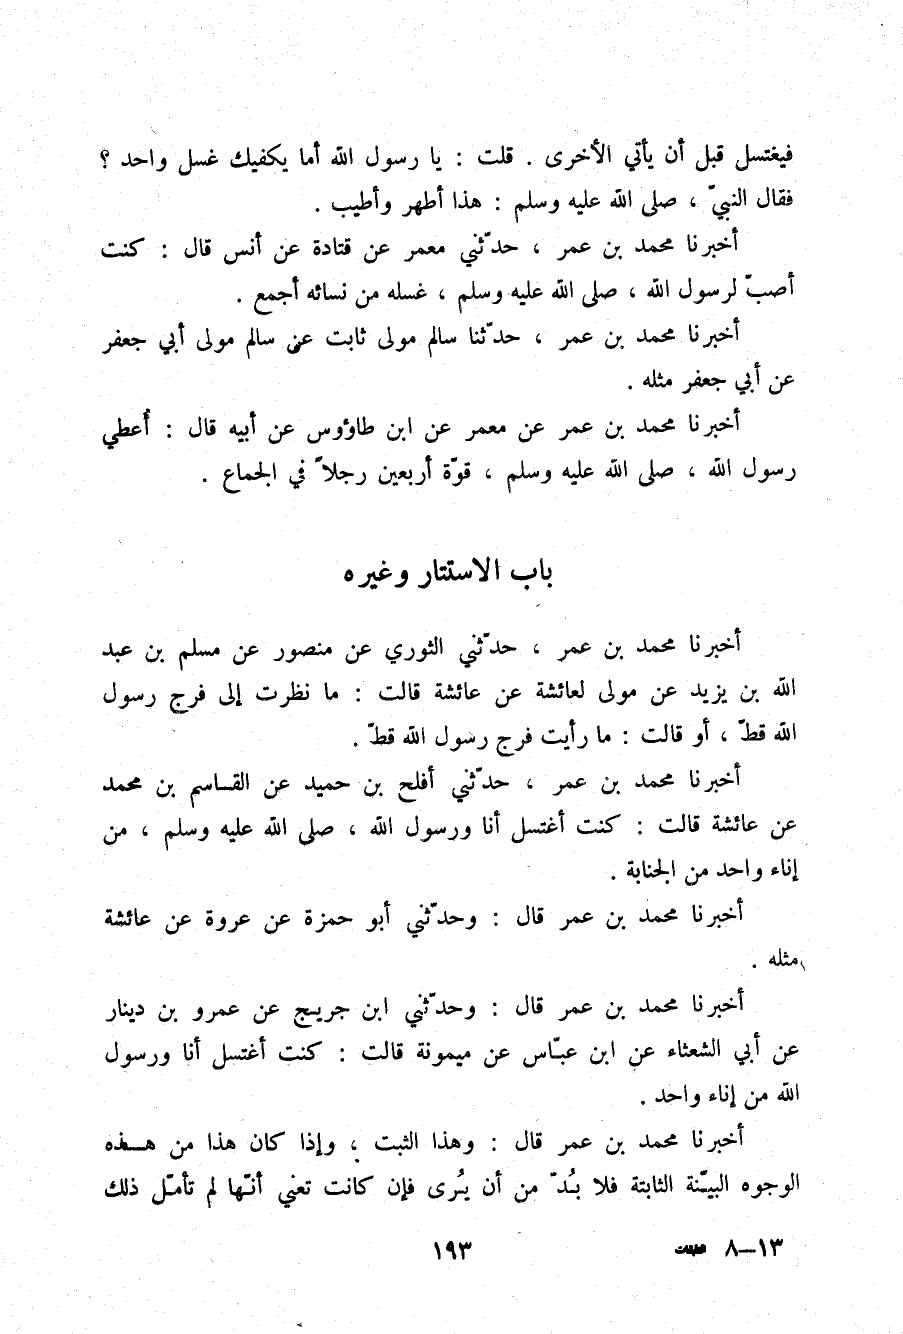 فيغتسل قبل أن يأتي الأخرى . قلت : يا رسول الله أما يكفيك غسل واحد ؟
فقال النبيّ ، صلى الله عليه وسلم : هذا أطهر وأطيب .
أخبرنا محمد بن عمر ، حدّثني معمر عن قتادة عن أنس قال : كنت
أصبّ لرسول الله ، صلى الله عليه وسلم ، غسله من نسائه أجمع .
أخبرنا محمد بن عمر ، حدّثنا سالم مولى ثابت عن سالم مولى أبي جعفر
عن أبي جعفر مثله .
أخبرنا محمد بن عمر عن معمر عن ابن طاؤوس عن أبيه قال : أُعطي
رسول الله ، صلى الله عليه وسلم ، قوّة أربعين رجلاً في الجماع .
باب الاستتار وغيره
أخبرنا محمد بن عمر ، حدّثني الثوري عن منصور عن مسلم بن عبد
الله بن يزيد عن مولى لعائشة عن عائشة قالت : ما نظرت إلى فرج رسول
الله قطّ ، أو قالت : ما رأيت فرج رسول الله قطّ .
أخبرنا محمد بن عمر ، حدّثني أفلح بن حميد عن القـاسم بن محمد
عن عائشة قالت : كنت أغتسل أنا ورسول الله ، صلى الله عليه وسلم ، من
إناء واحد من الجنابة .
أخبرنا محمد بن عمر قال : وحدّثني أبو حمزة عن عروة عن عائشة
مثله .
أخبرنا محمد بن عمر قال : وحدّثني ابن جريـج عن عمرو بن دينار
عن أبي الشعثاء عن ابن عبّاس عن ميمونة قالت : كنت أغتسل أنا ورسول
الله من إناء واحد .
أخبرنا محمد بن عمر قال : وهذا الثبت ، وإذا كان هذا من هـذه
الوجوه البيّنة الثابتة فلا بُدّ من أن يُرى فإن كانت تعني أنّها لم تأمّل ذلك
١٣–٨ طبقات
١٩٣